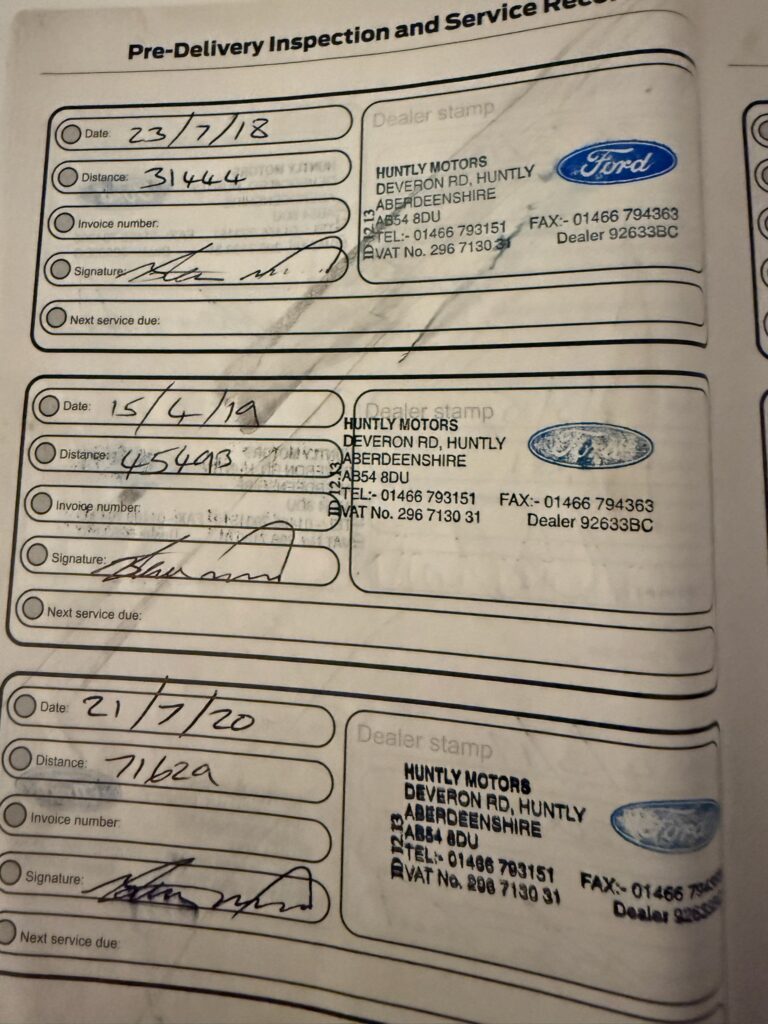 Pre-Delivery Inspection and Service
Date: 23/7/18
Distance: 31444
Invoice number:
Signature:
Next service due:
Dealer stamp
HUNTLY MOTORS
DEVERON RD, HUNTLY
ABERDEENSHIRE
AB54 8DU
TEL:- 01466 793151 FAX:- 01466 794363
VAT No. 296 7130 31 Dealer 92633BC
ID 12.13
Ford
Date: 15/4/19
Distance: 45493
Invoice number:
Signature:
Next service due:
Dealer stamp
HUNTLY MOTORS
DEVERON RD, HUNTLY
ABERDEENSHIRE
AB54 8DU
TEL:- 01466 793151 FAX:- 01466 794363
VAT No. 296 7130 31 Dealer 92633BC
ID 12.13
Ford
Date: 21/7/20
Distance: 71629
Invoice number:
Signature:
Next service due:
Dealer stamp
HUNTLY MOTORS
DEVERON RD, HUNTLY
ABERDEENSHIRE
AB54 8DU
TEL:- 01466 793151 FAX:- 01466
VAT No. 296 7130 31 Dealer
ID 12.13
Ford